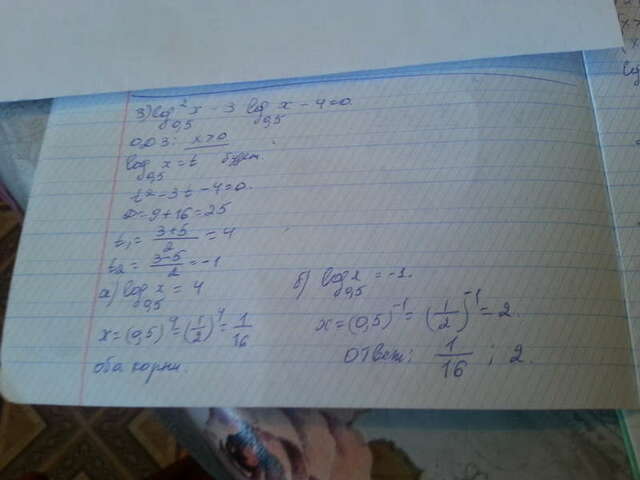 3) log²₀,₅ x - 3 log₀,₅ x - 4 = 0.
ОДЗ: x > 0
log₀,₅ x = t
t² - 3t - 4 = 0.
D = 9 + 16 = 25
t₁ = (3+5)/2 = 4
t₂ = (3-5)/2 = -1
а) log₀,₅ x = 4
x = (0,5)⁴ = (1/2)⁴ = 1/16
оба корни.
б) log₀,₅ x = -1.
x = (0,5)⁻¹ = (1/2)⁻¹ = 2.
Ответ: 1/16 ; 2.